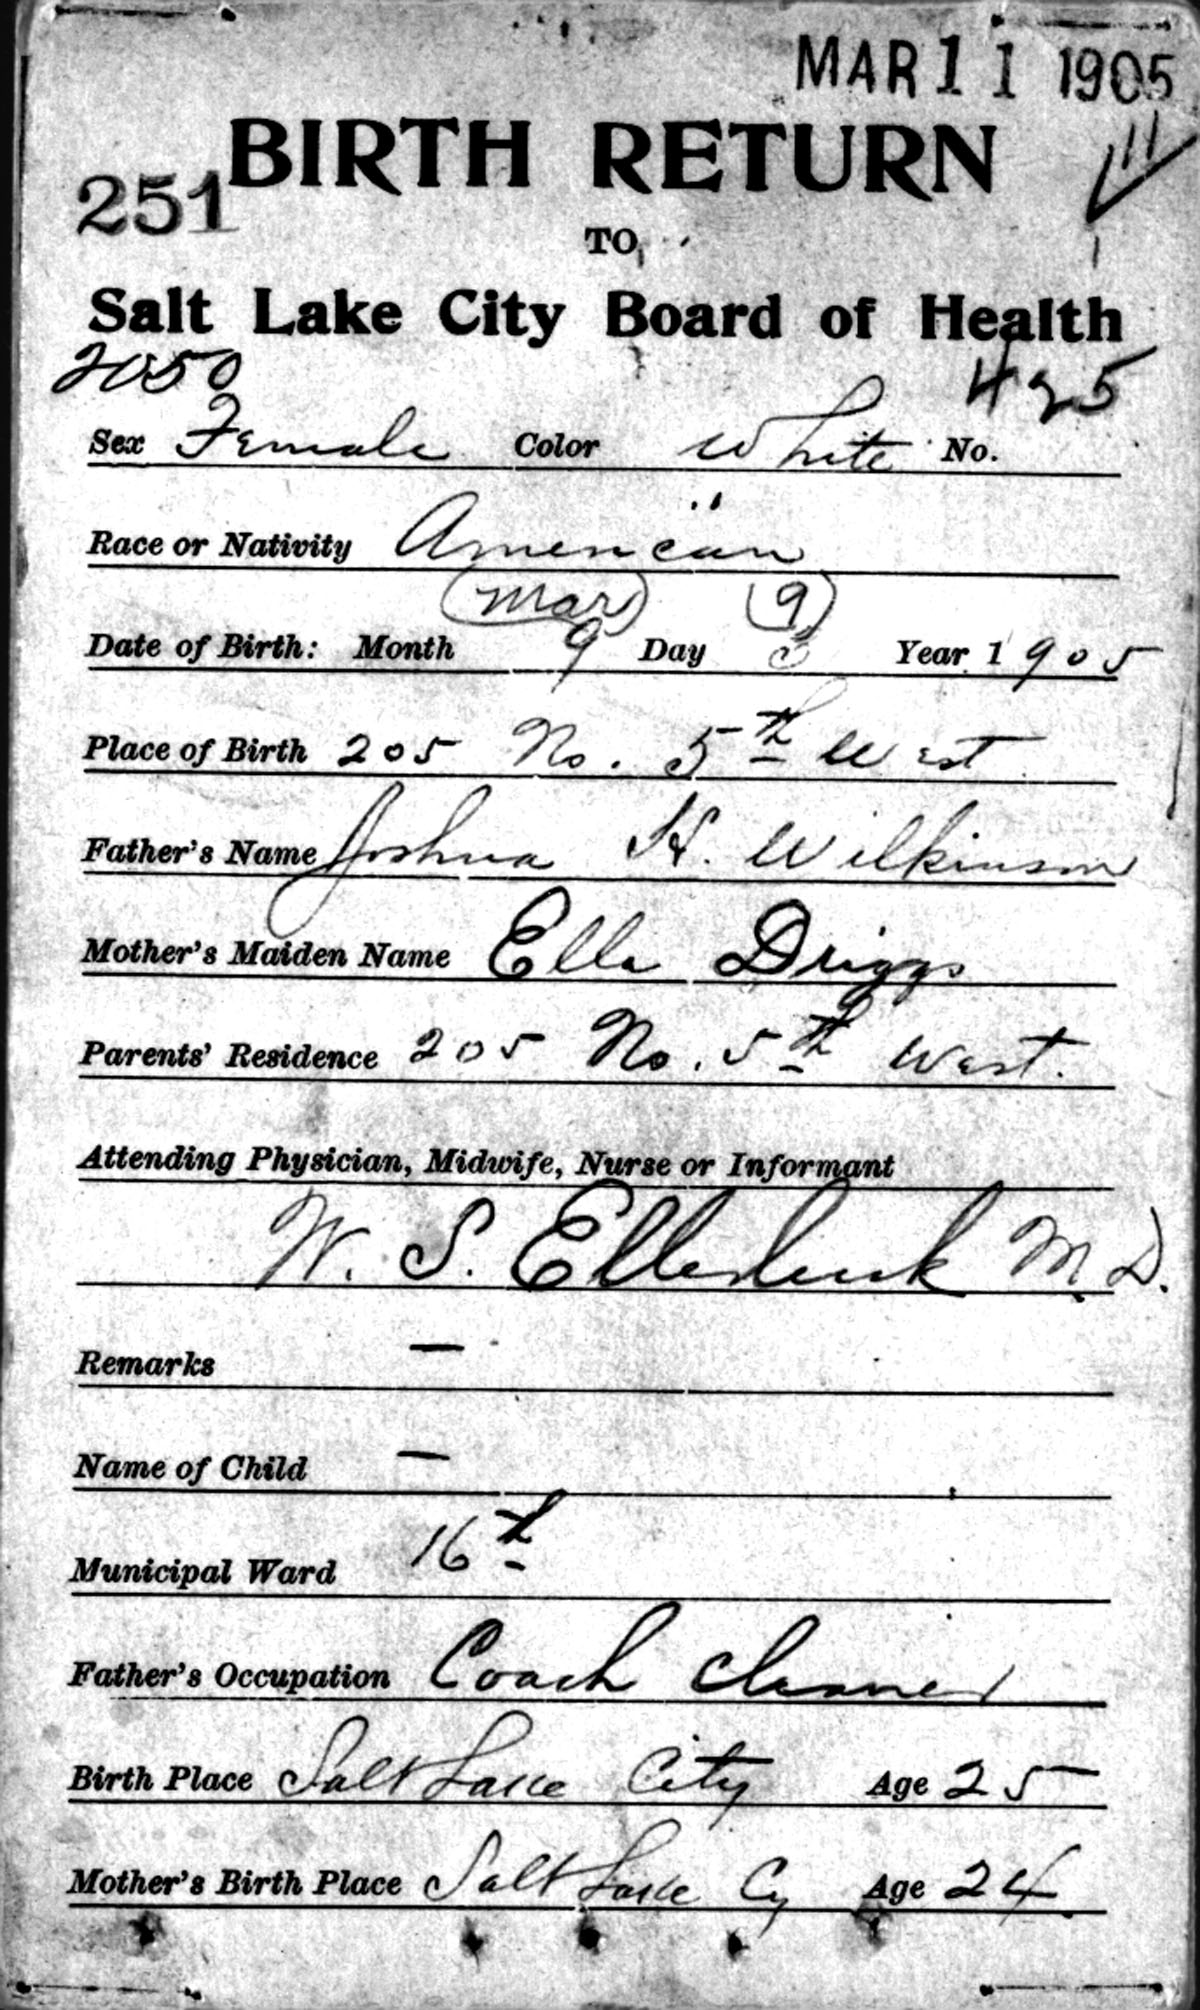 MAR 11 1905
11
BIRTH RETURN
251
TO
Salt Lake City Board of Health
2050 425
Sex Female Color White No.
Race or Nativity American
Mar 9
Date of Birth: Month 9 Day 3 Year 1905
Place of Birth 205 No. 5th West
Father's Name Joshua H. Wilkinson
Mother's Maiden Name Ella Driggs
Parents' Residence 205 No. 5th West.
Attending Physician, Midwife, Nurse or Informant
W. S. Ellerbeck M.D.
Remarks —
Name of Child —
Municipal Ward 16th
Father's Occupation Coach cleaner
Birth Place Salt Lake City Age 25
Mother's Birth Place Salt Lake Cy Age 24